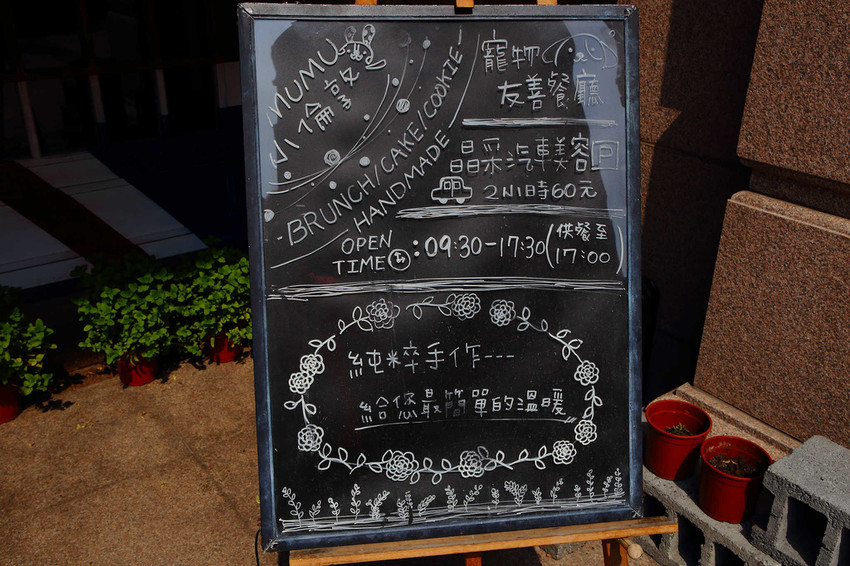 MUMU
小倫敦
BRUNCH/CAKE/COOKIE
HANDMADE
寵物
友善餐廳
晶采汽車美容
2小時60元
OPEN
TIME
:09:30-17:30(供餐至
17:00)
純粹手作---
給您最簡單的溫暖